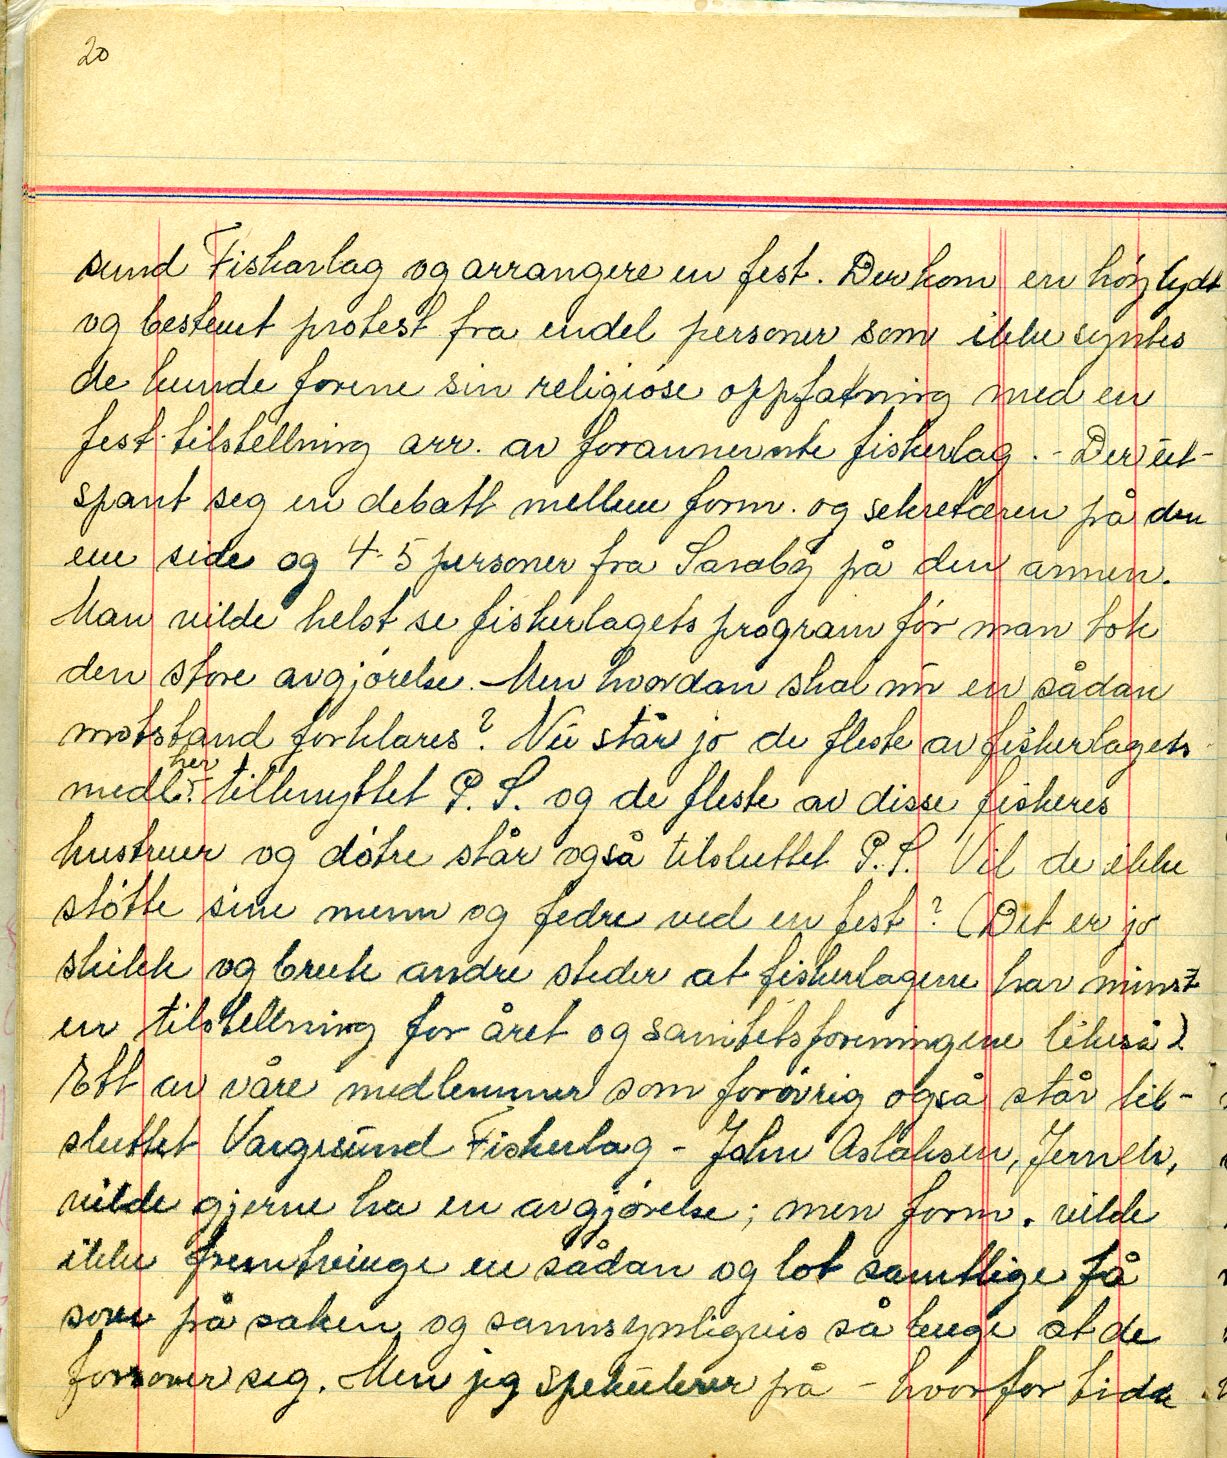 20
sund Fiskarlag og arrangere en fest. Der kom en höylydt
og bestemt protest fra endel personer som ikke syntes
de kunde forene sin religiöse oppfatning med en
fest-tilstellning arr. av forannevnte fiskerlag. - Der ut-
spant seg en debatt mellem form. og sekretæren på den
ene side og 4-5 personer fra Saraby på den annen.
Man vilde helst se fiskerlagets program för man tok
den store avgjörelse. - Men hvordan skal nu en sådan
motstand forklares? Nu står jo de fleste av fiskerlagets
her
medl. tilknyttet P. S. og de fleste av disse fiskeres
hustruer og dötre står også tilsluttet P. S. Vil de ikke
stötte sine menn og fedre ved en fest? (Det er jo
skikk og bruk andre steder at fiskerlagene har minst
en tilstellning for året og sanitetsforeningene likeså)
Ett av våre medlemmer som forövrig også står til-
sluttet Vargsund Fiskerlag - John Aslaksen, Jernelv,
vilde gjerne ha en avgjörelse; men form. vilde
ikke fremtvinge en sådan og lot samtlige få
sove på saken og sannsynligvis så lenge at de
forsover seg. Men jeg spekulerer på - hvorfor